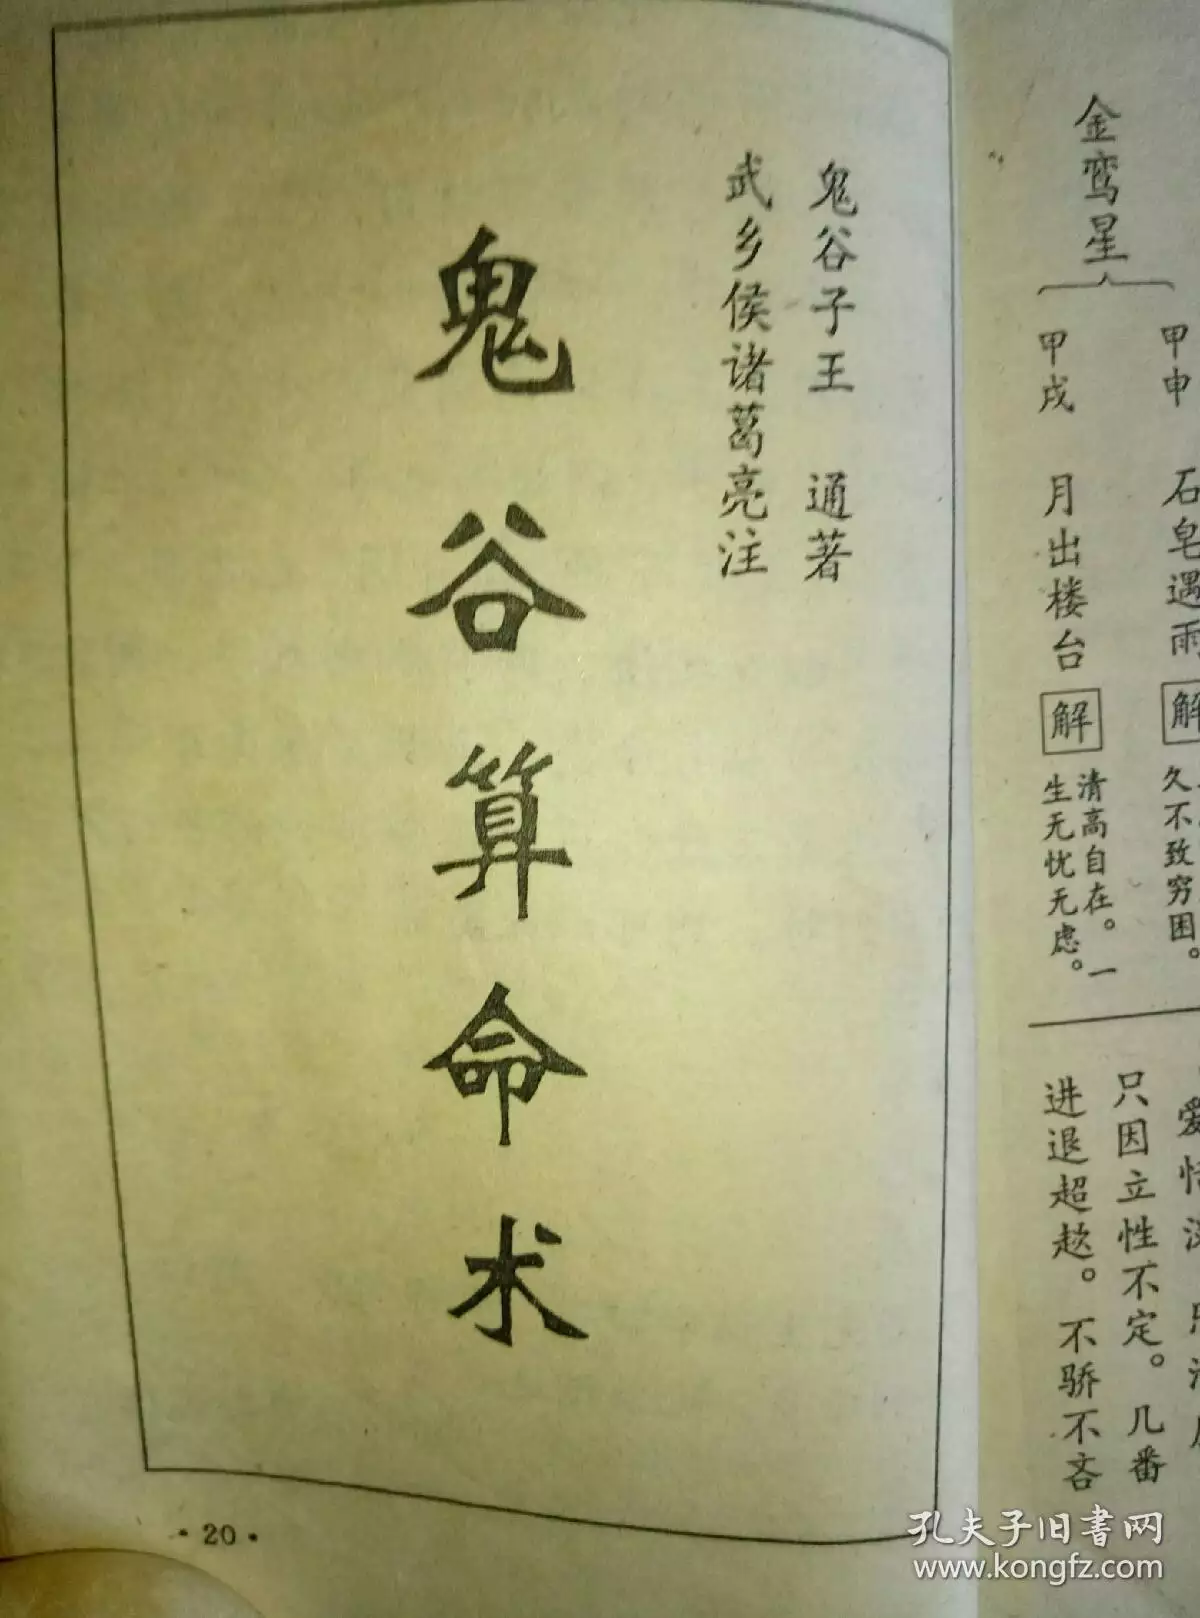 鬼谷子王　通著
武乡侯诸葛亮注
鬼谷算命术
·20·
甲申
石皂遇雨
解
久不致穷困。
金鸾星
甲戌
月出楼台
解
清高自在。一
生无忧无虑。
只因立性不定。几番
进退趑趄。不骄不吝
孔夫子旧书网
www.kongfz.com